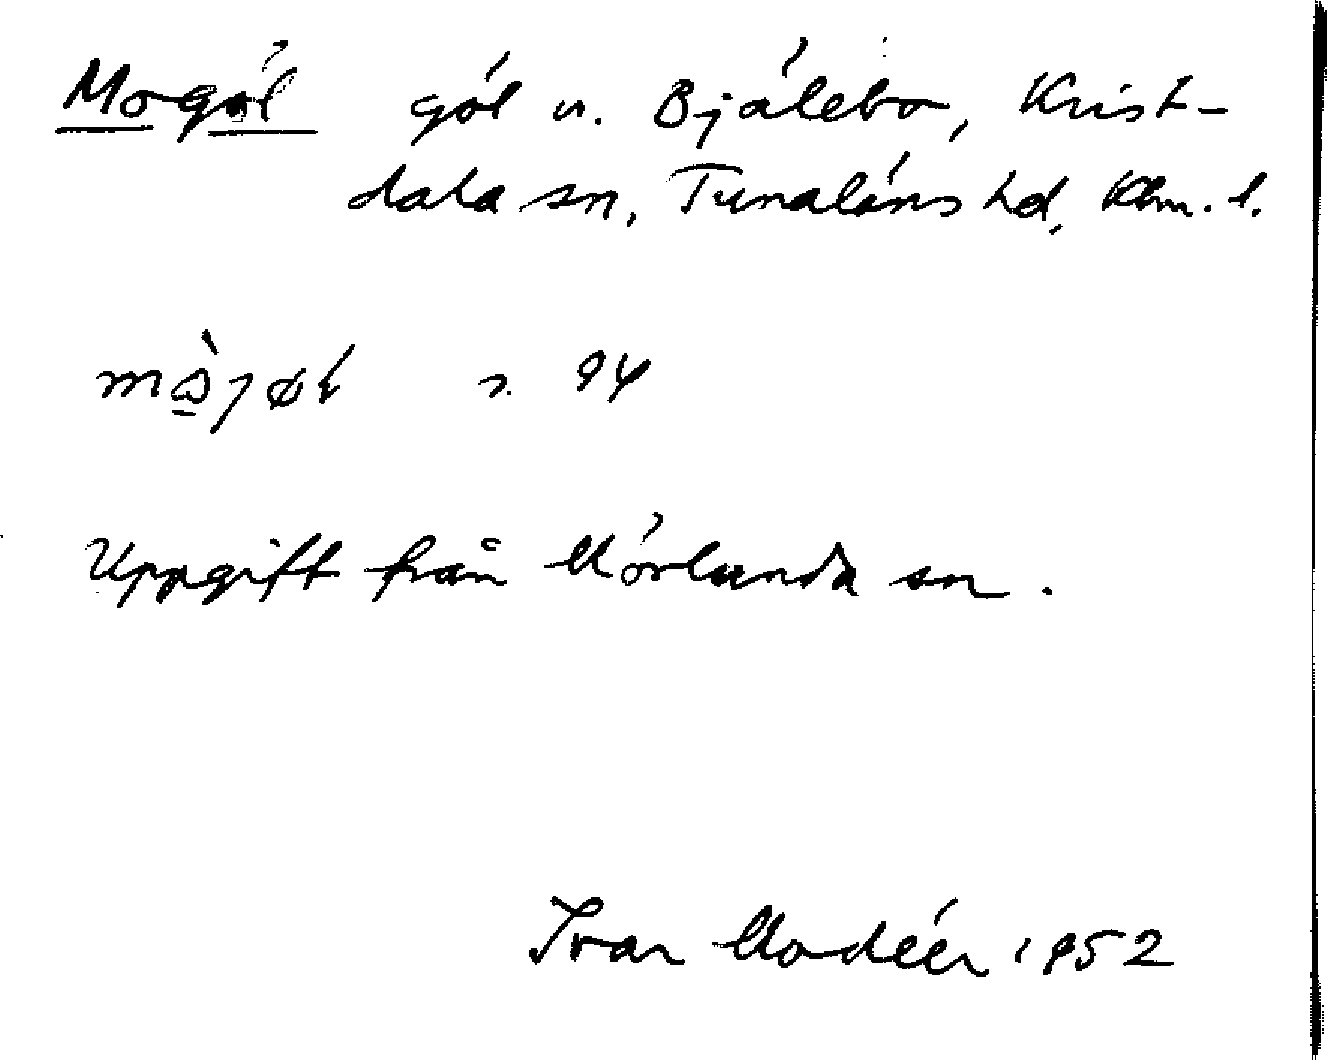 Mogöl göl v. Bjälebo, Krist-
dala sn, Tunaläns hd, Klm. l.
s. 94
Uppgift från Mörlunda sn.
Ivar Modéer 1952